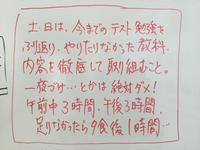 土・日は、今までのテスト勉強を
ふり返り、やりたりなかった教科、
内容を徹底して取り組むこと。
一夜づけ…とかは絶対ダメ！
午前中3時間、午後3時間、
足りなかったら夕食後1時間…